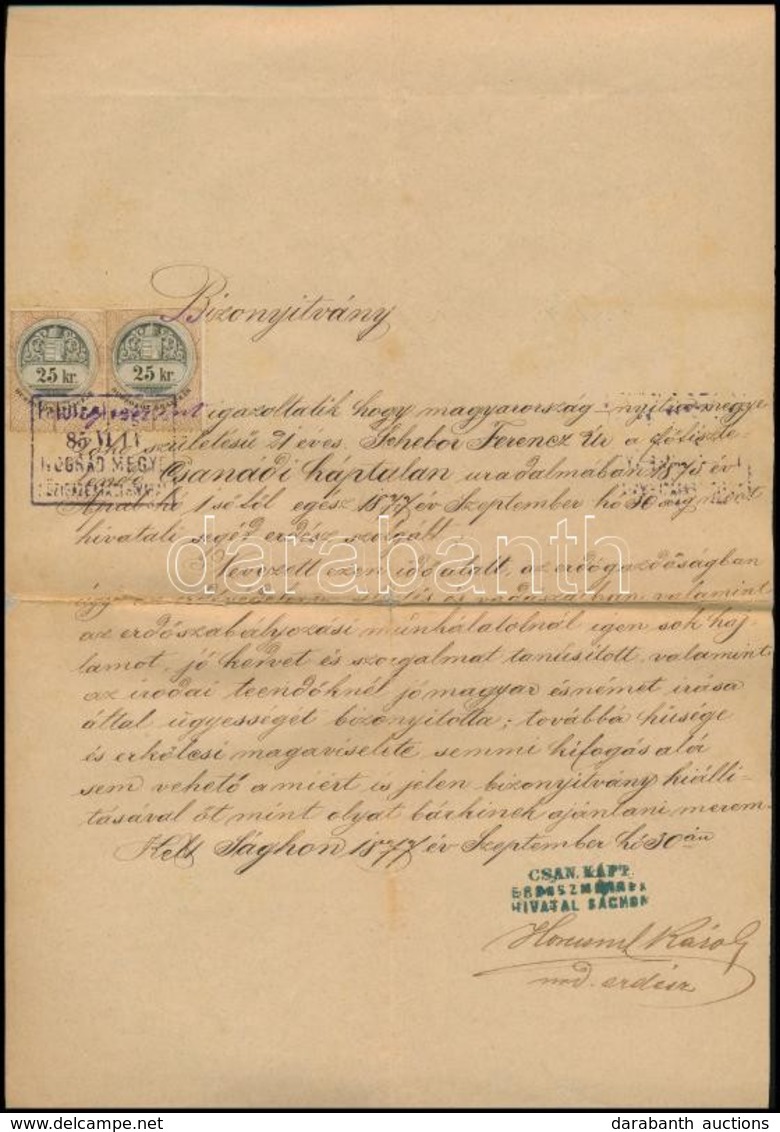 Bizonyitvány
25 kr. 25 kr.
igazoltatik hogy magyarország nyitra megye
születésű 21 eves. Schebor Ferencz Úr a főtiszte-
Csanádi káptalan uradalmában 1875 év
1 sőtől egész 1877 év Szeptember hó 30 áig mint
hivatali segéd erdész szolgált.
Nevezett ezen idő alatt, az erdőgazdőságban
valamint
az erdőszabályozási munkálatoknál igen sok haj-
lamot, jó kedvet és szorgalmat tanúsított, valamint
az irodai teendőknél jó magyar és német irása
által ügyességét bizonyitotta; továbbá hűsége
és erkölcsi magaviselete semmi kifogás alá
sem vehető a miért is jelen bizonyitvány kiálli-
tásával őt mint olyat bárkinek ajánlani merem.
Kelt Sághon 1877 év Szeptember hó 30 án
NÓGRÁD MEGYE
CSAN. KÁPT.
HIVATAL SÁGHON
Károly
erdész
darabanth
www.delcampe.net
darabanth auctions